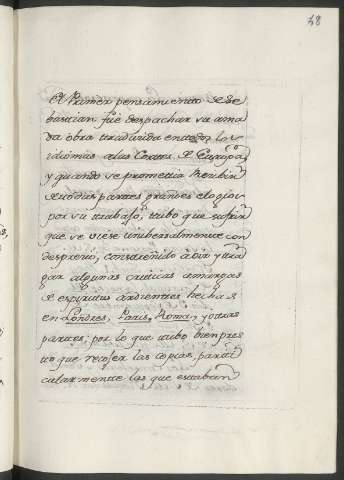 48
El Primer pensamiento de Se
bastian fue despachar su ama
da obra traducida en todos los
idiomas a las Cortes de Europa,
y quando se prometia Recibir
de todas partes grandes elogios
por su trabajo, tubo que sufrir
que se viese unibersalmente con
desprecio, constreñido a oir y tra
gar algunas criticas amargas
de espiritus ardientes hechas
en Londres, Paris, Roma, y otras
partes, por lo que tubo bien pres
to que recojer las copias, parti
cularmente las que estaban